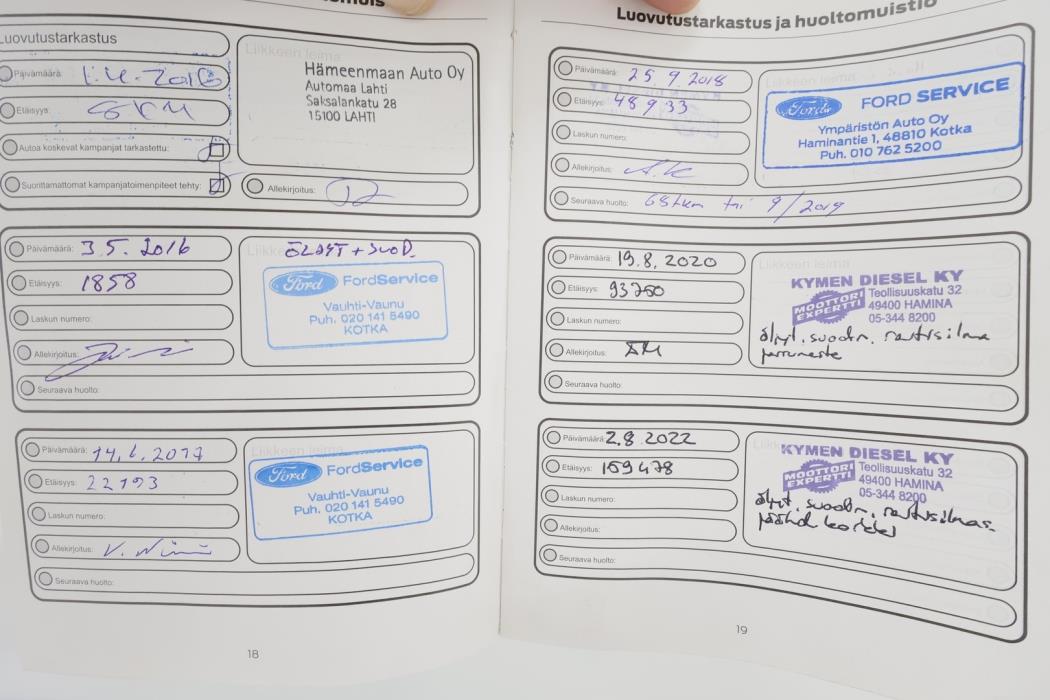 Luovutustarkastus
Päivämäärä: 1.4.2016
Etäisyys: 6KM
Autoa koskevat kampanjat tarkastettu:
Suorittamattomat kampanjatoimenpiteet tehty:
Liikkeen leima
Hämeenmaan Auto Oy
Automaa Lahti
Saksalankatu 28
15100 LAHTI
Allekirjoitus:
Päivämäärä: 3.5. 2016
Etäisyys: 1858
Laskun numero:
Allekirjoitus:
Seuraava huolto:
ÖLJYT + SUOD.
Ford FordService
Vauhti-Vaunu
Puh. 020 141 5490
KOTKA
Päivämäärä: 14.6.2017
Etäisyys: 22193
Laskun numero:
Allekirjoitus:
Seuraava huolto:
Ford FordService
Vauhti-Vaunu
Puh. 020 141 5490
KOTKA
18
Luovutustarkastus ja huoltomuistio
Päivämäärä: 25 9.2018
Etäisyys: 48933
Laskun numero:
Allekirjoitus:
Seuraava huolto: 68tkm tai 9/2019
Liikkeen leima
Ford FORD SERVICE
Ympäristön Auto Oy
Haminantie 1, 48810 Kotka
Puh. 010 762 5200
Päivämäärä: 19.8.2020
Etäisyys: 93760
Laskun numero:
Allekirjoitus:
Seuraava huolto:
Liikkeen leima
KYMEN DIESEL KY
MOOTTORI EXPERTTI
Teollisuuskatu 32
49400 HAMINA
05-344 8200
öljyt. suodn. raitisilma
jarruneste
Päivämäärä: 2.8.2022
Etäisyys: 159478
Laskun numero:
Allekirjoitus:
Seuraava huolto:
KYMEN DIESEL KY
MOOTTORI EXPERTTI
Teollisuuskatu 32
49400 HAMINA
05-344 8200
öljyt. suodn. raitisilmas.
19